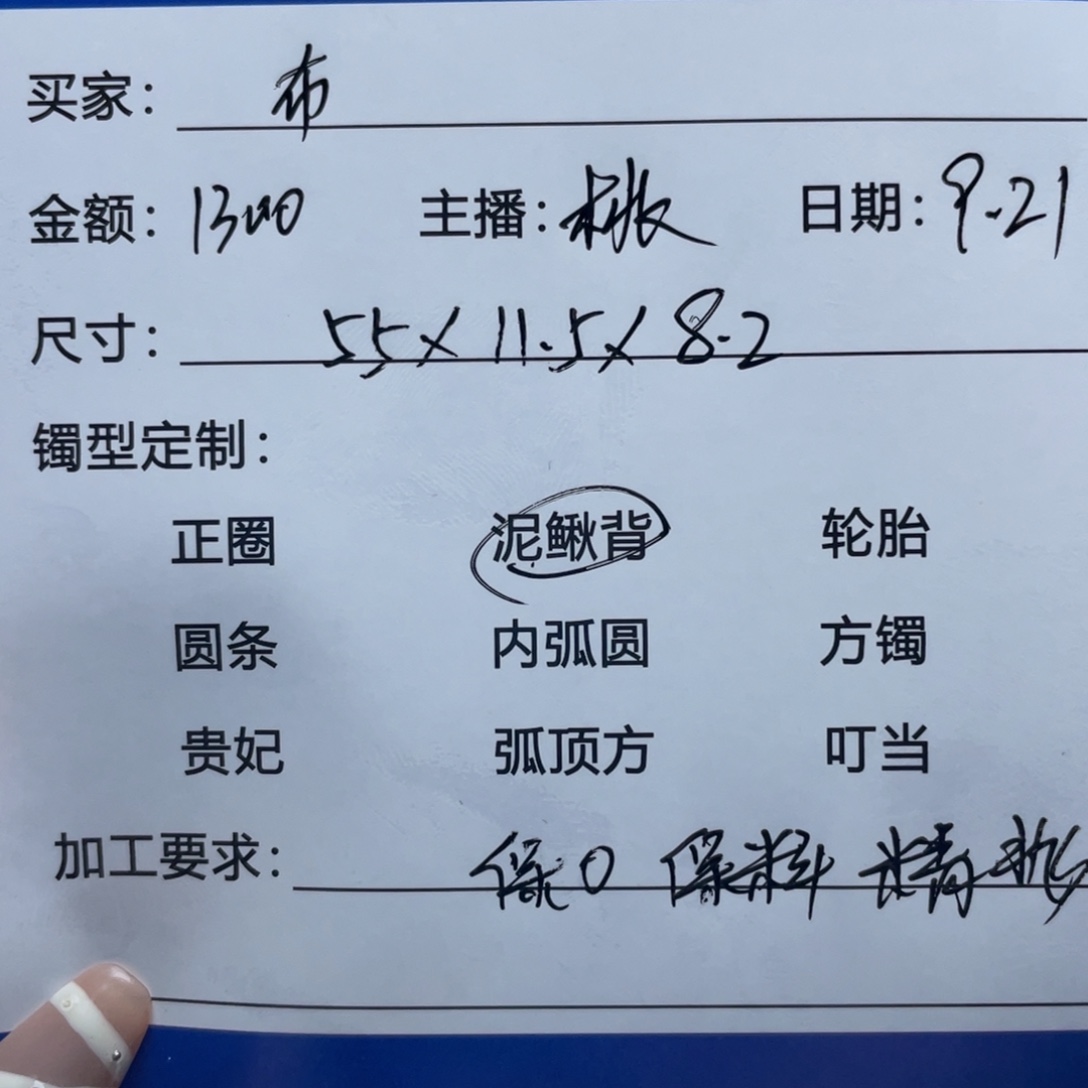 买家： 布
金额：1300 主播： 日期：9.21
尺寸： 55×11.5×8.2
镯型定制：
正圈 泥鳅背 轮胎
圆条 内弧圆 方镯
贵妃 弧顶方 叮当
加工要求： 保O 保料 精抛